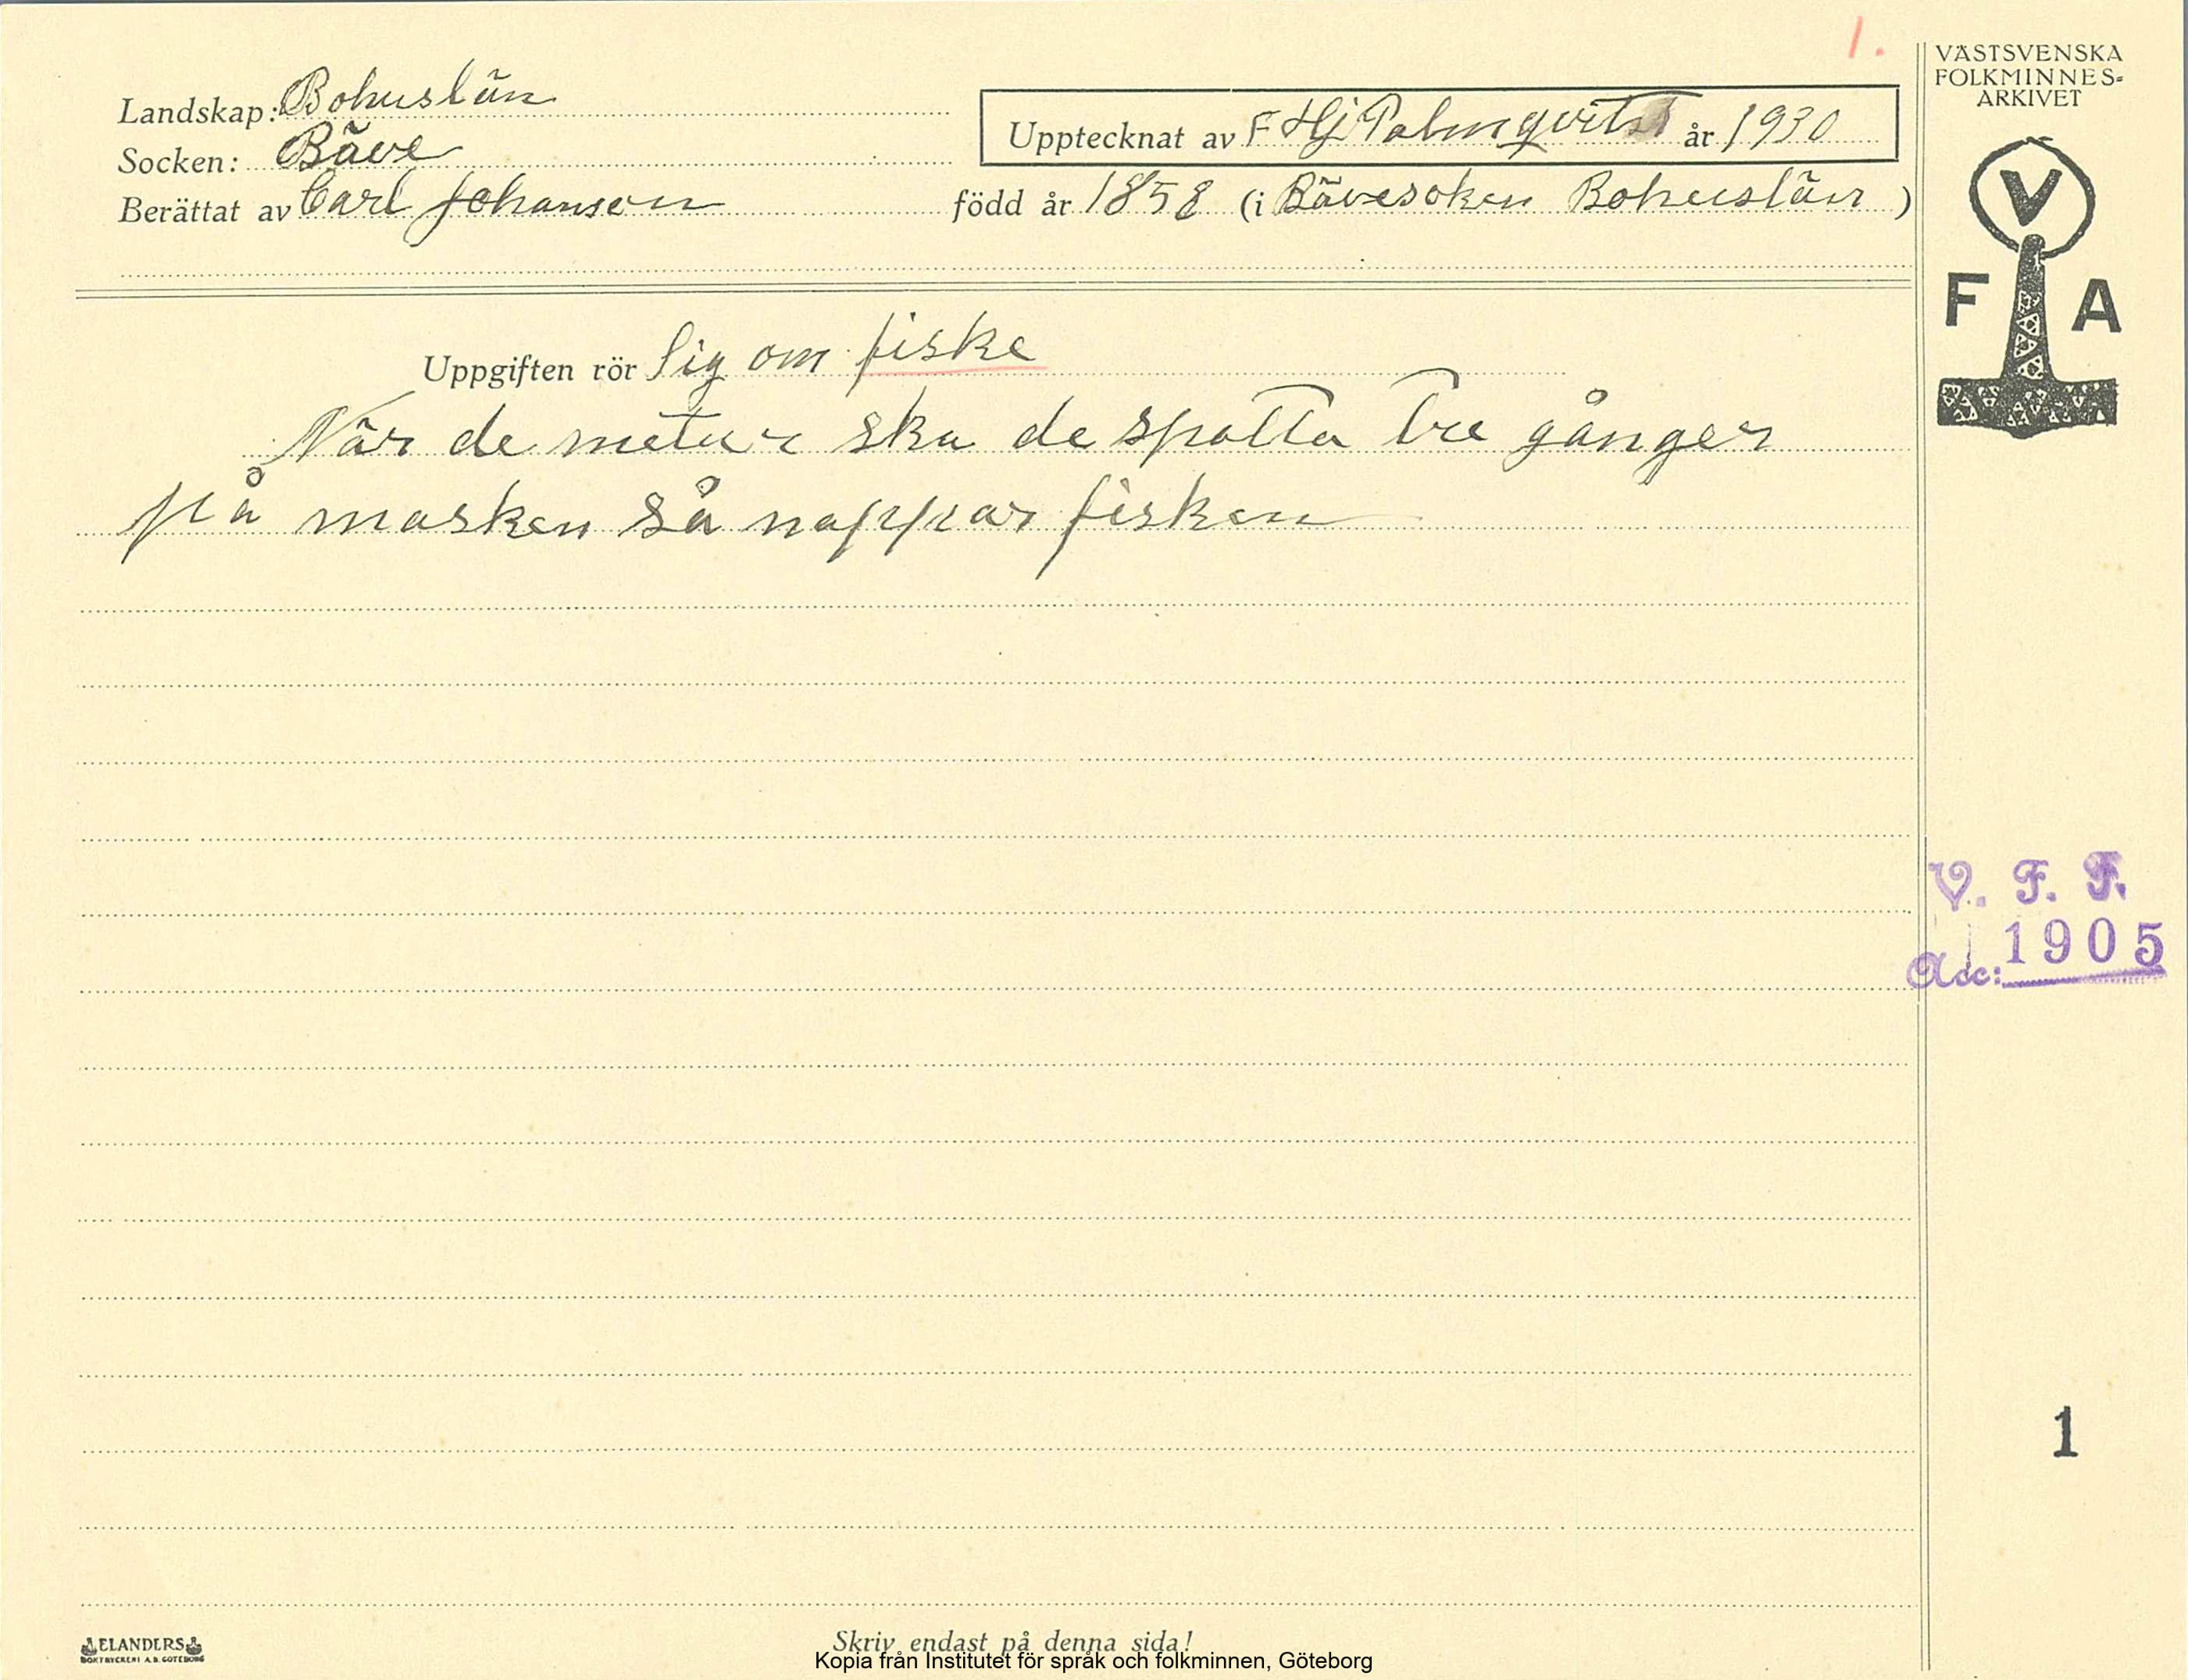 1.
VÄSTSVENSKA
FOLKMINNES-
ARKIVET
Landskap: Bohuslän
Upptecknat av F Hj Palmqvist år 1930
Socken: Bäve
Berättat av Carl Johanson född år 1858 (i Bävesoken Bohuslän)
V
F A
Uppgiften rör sig om fiske
När de metar ska de spotta tre gånger
på masken så nappar fisken
V. F. F.
Acc: 1905
1
ELANDERS
BOKTRYCKERI A.B. GÖTEBORG
Skriv endast på denna sida!
Kopia från Institutet för språk och folkminnen, Göteborg